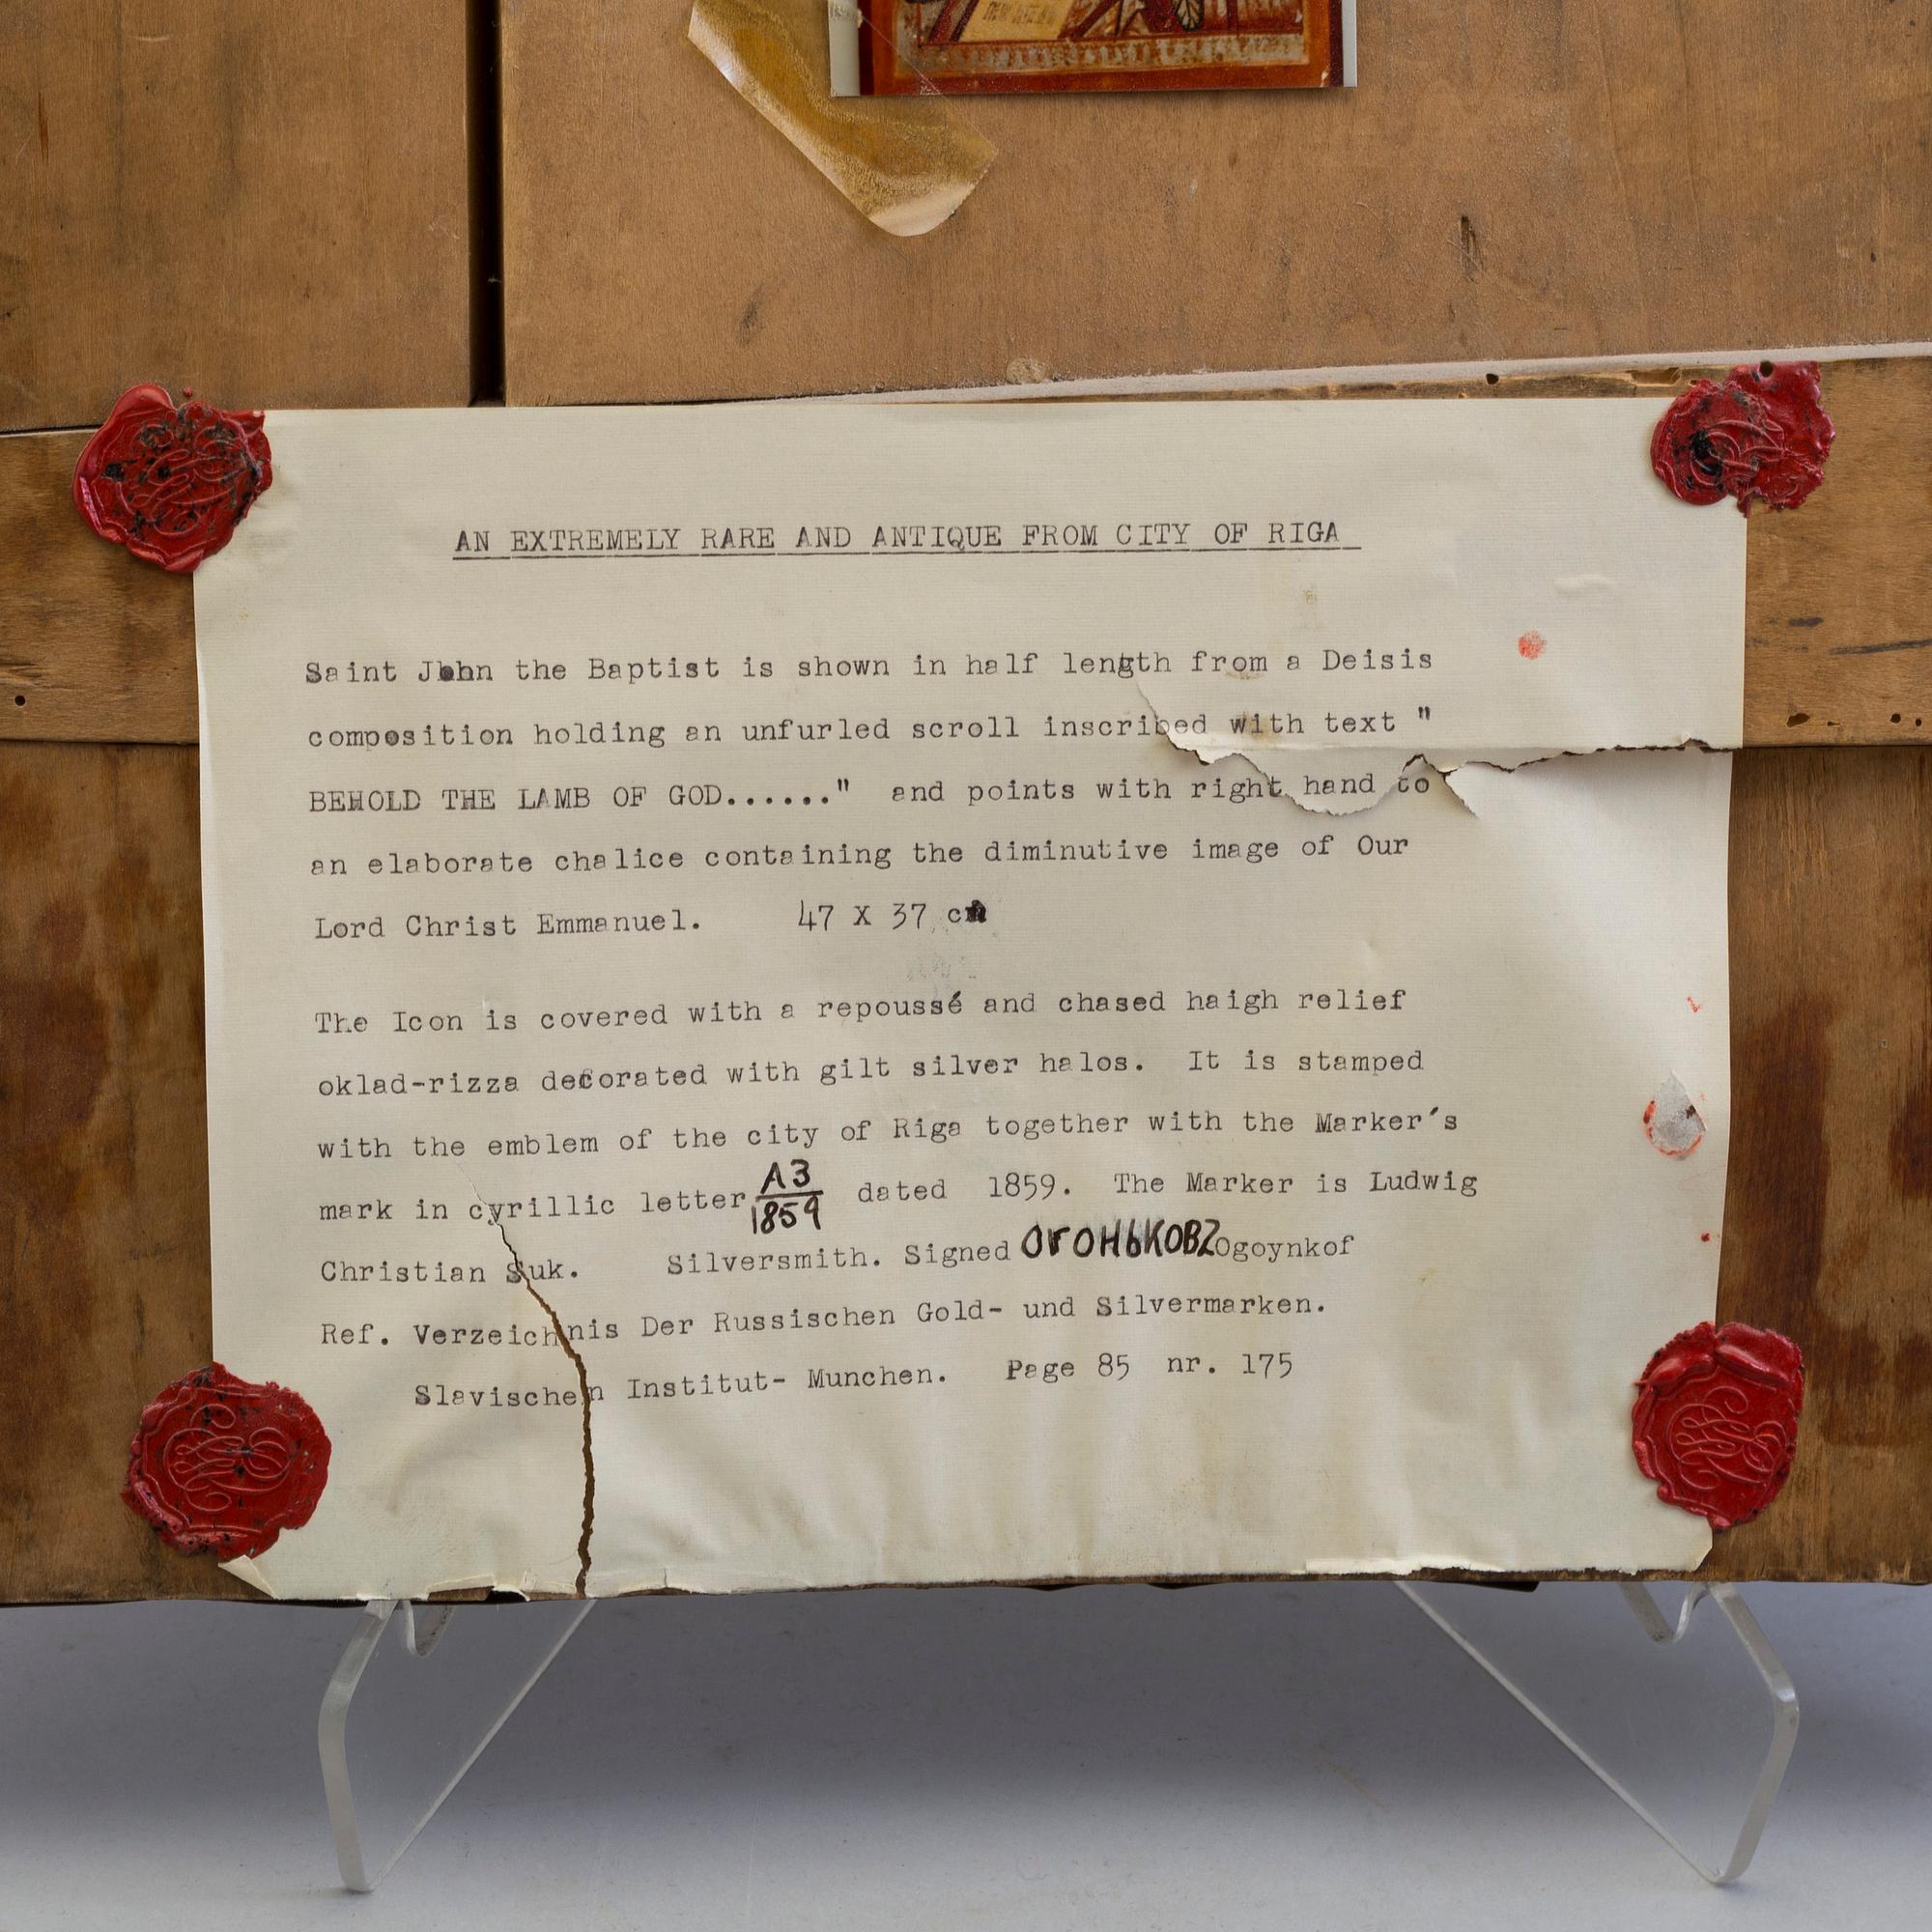 AN EXTREMELY RARE AND ANTIQUE FROM CITY OF RIGA
Saint John the Baptist is shown in half length from a Deisis
composition holding an unfurled scroll inscribed with text "
BEHOLD THE LAMB OF GOD......" and points with right hand to
an elaborate chalice containing the diminutive image of Our
Lord Christ Emmanuel. 47 X 37 cm
The Icon is covered with a repoussé and chased haigh relief
oklad-rizza decorated with gilt silver halos. It is stamped
with the emblem of the city of Riga together with the Marker's
mark in cyrillic letter АЗ/1859 dated 1859. The Marker is Ludwig
Christian Suk. Silversmith. Signed ОГОНЬКОВЪ Ogoynkof
Ref. Verzeichnis Der Russischen Gold- und Silvermarken.
Slavischen Institut- Munchen. Page 85 nr. 175